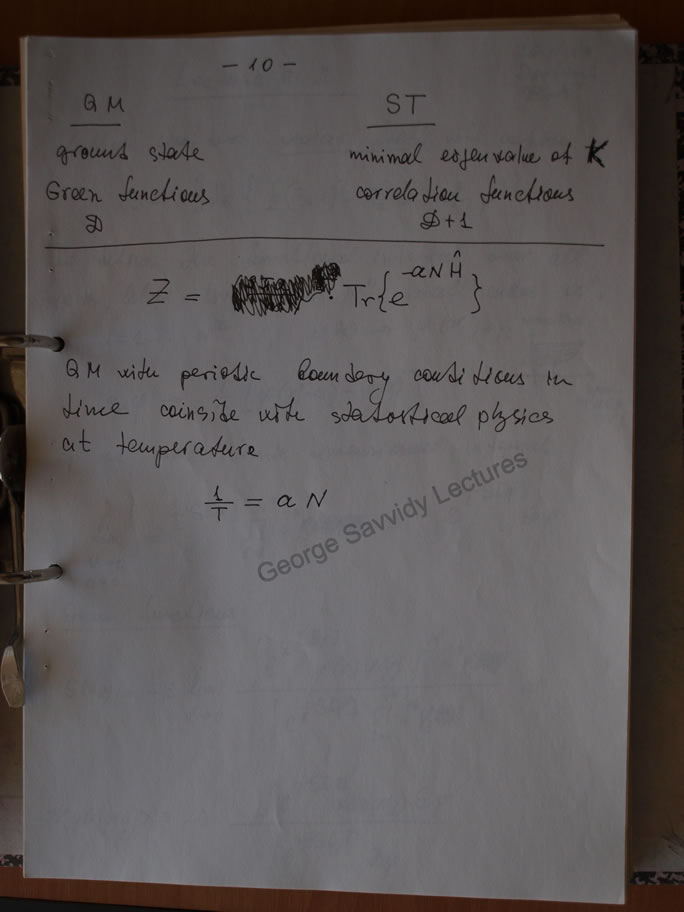 - 10 -
QM ST
ground state minimal eigenvalue of K
Green functions correlation functions
D D+1
Z = Tr{e^{-aNĤ}}
QM with periodic boundary conditions in
time coinside with statistical physics
at temperature
1/T = a N
George Savvidy Lectures